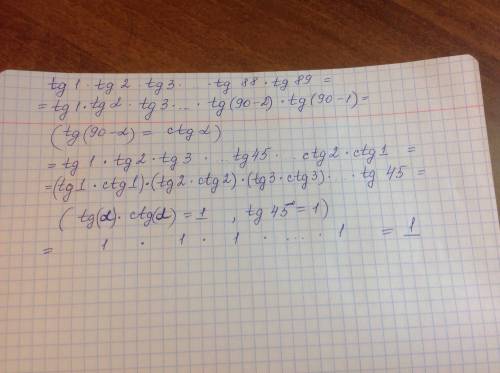 tg 1 · tg 2 · tg 3 · ... · tg 88 · tg 89 =
= tg 1 · tg 2 · tg 3 · ... · tg (90-2) · tg (90-1) =
( tg (90-α) = ctg α )
= tg 1 · tg 2 · tg 3 · ... tg 45 · ... ctg 2 · ctg 1 =
= (tg 1 · ctg 1) · (tg 2 · ctg 2) · (tg 3 · ctg 3) · ... · tg 45 =
( tg(α) · ctg(α) = 1 , tg 45° = 1 )
= 1 · 1 · 1 · ... · 1 = 1